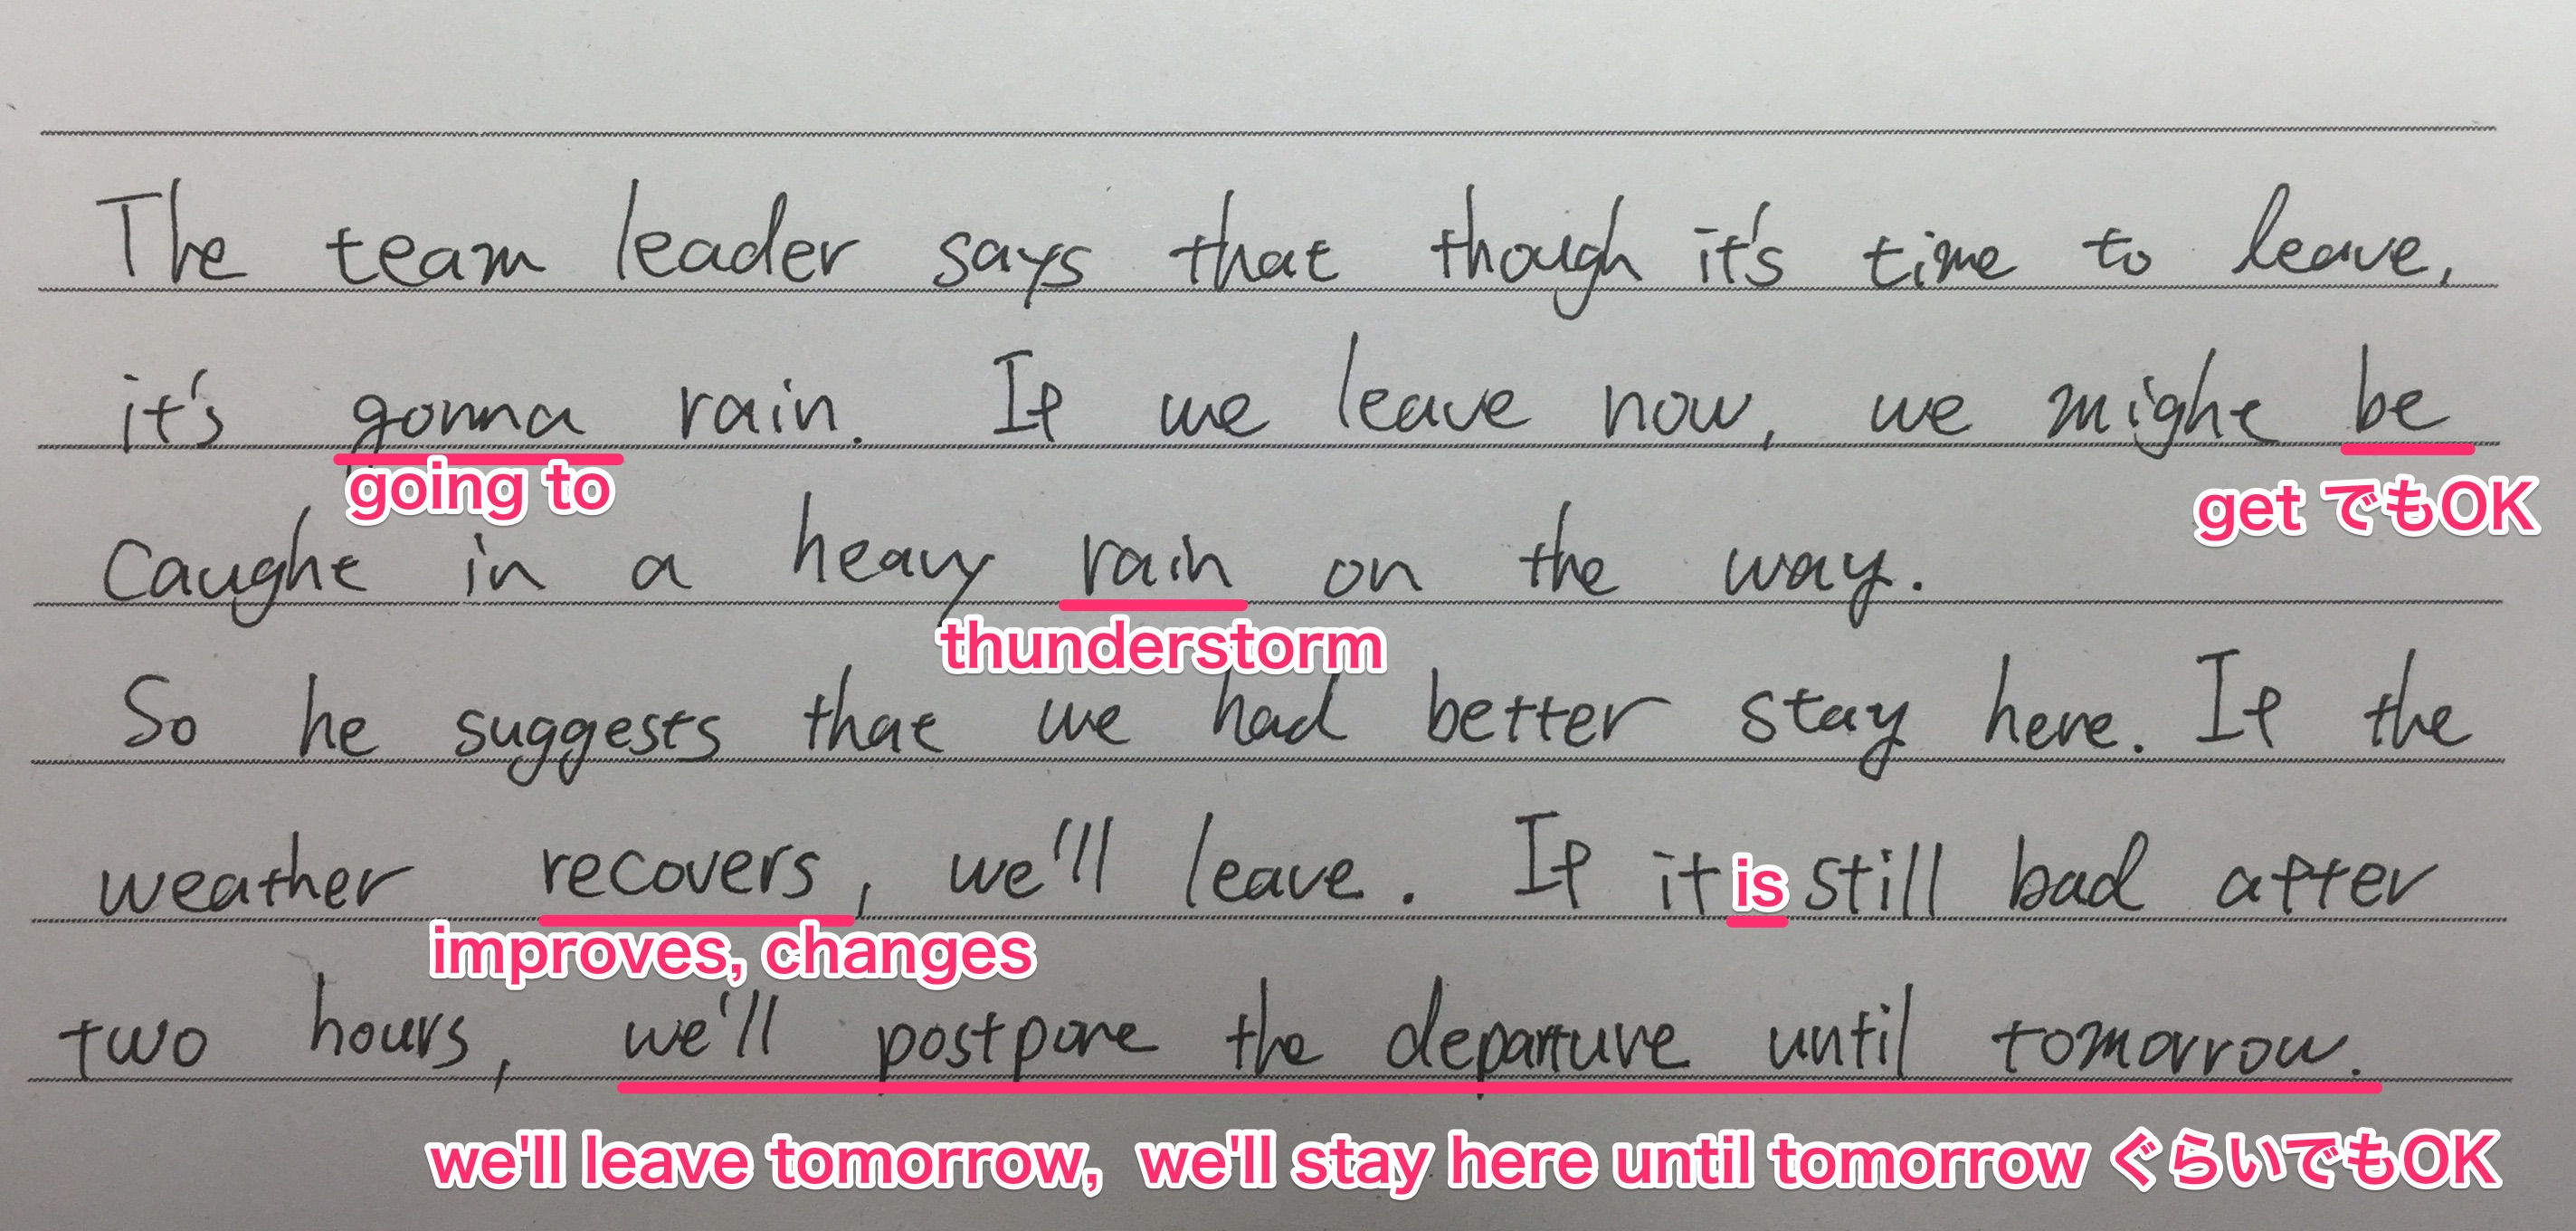 The team leader says that though it's time to leave,
it's gonna rain. If we leave now, we might be
going to
get でもOK
caught in a heavy rain on the way.
thunderstorm
So he suggests that we had better stay here. If the
weather recovers, we'll leave. If it is still bad after
improves, changes
two hours, we'll postpone the departure until tomorrow.
we'll leave tomorrow, we'll stay here until tomorrow ぐらいでもOK